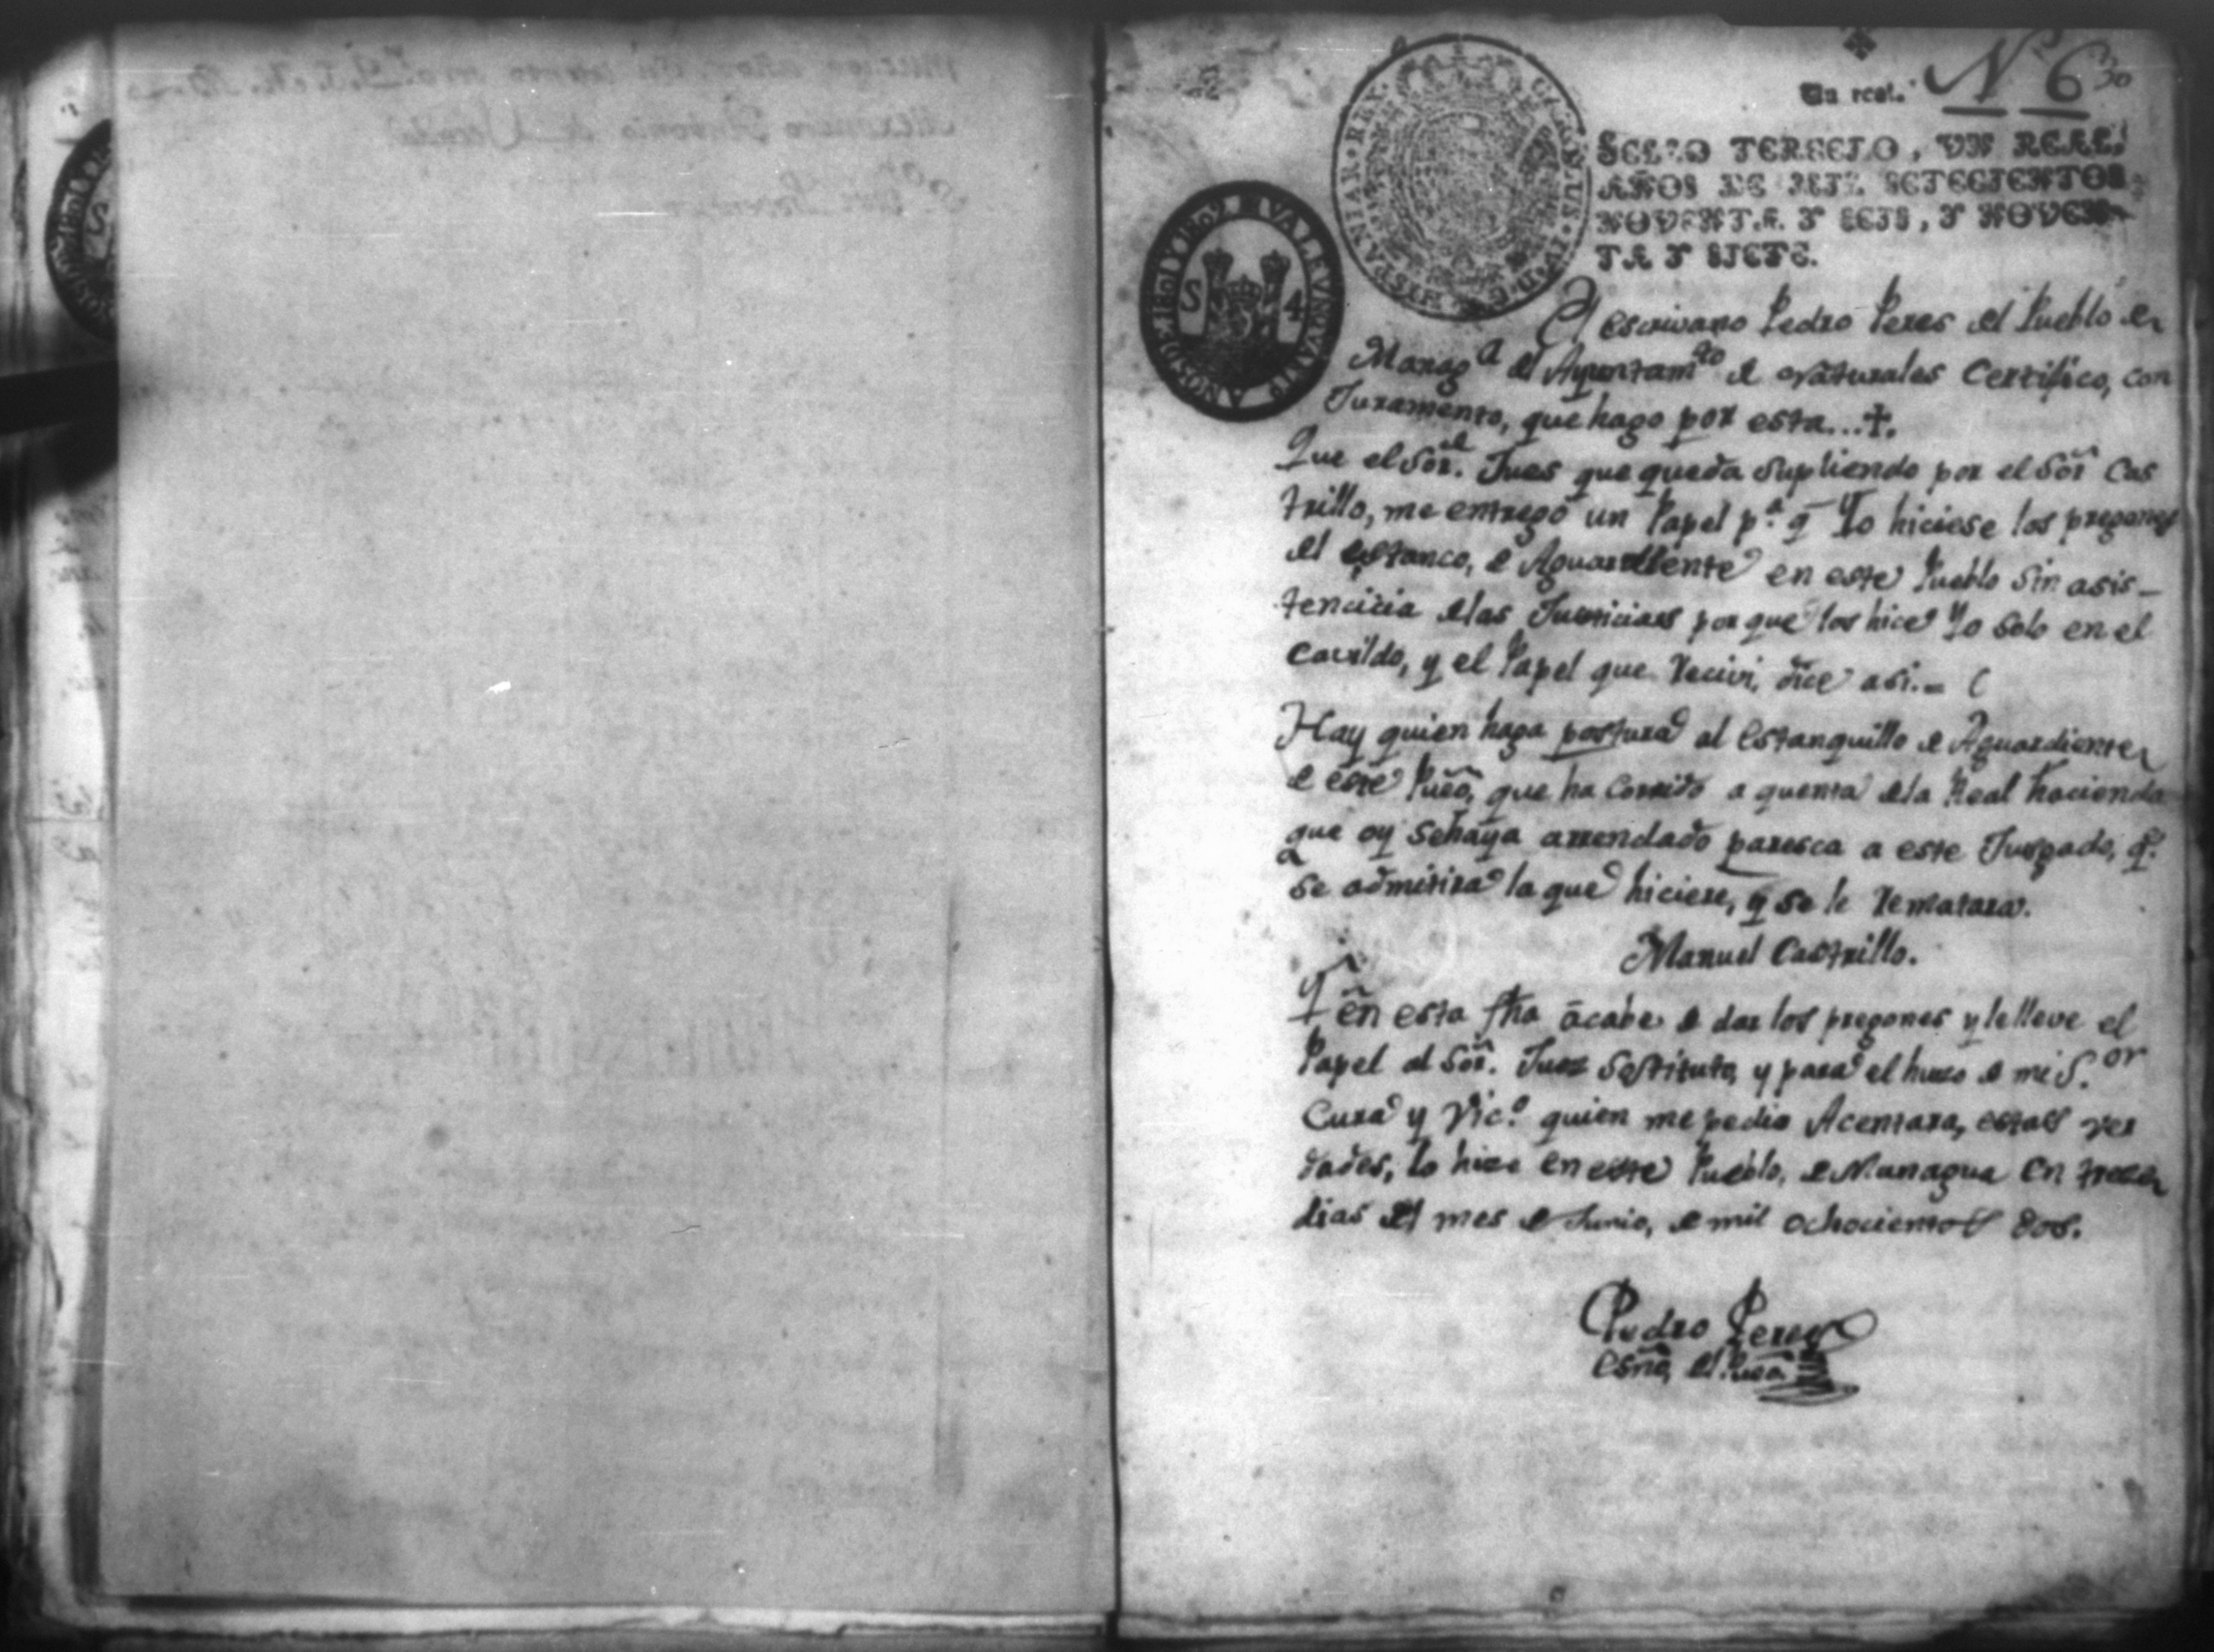 Un real.
N.º 6
30
SELLO TERCEJO, VN REAL,
AÑOS DE MJL SETECJENTOS
NOVENTA Y SEJS, Y NOVEN-
TA Y SJETE.
HISPANIAR·REX·
CAROLUS·IV·D·G·
VALE UN QUARTO
S 4
El escrivano Pedro Peres del Pueblo de
Manag.ª del Ayuntam.to de Naturales Certifico, con
Juramento, que hago por esta...†.
Que el Sor. Jues que queda supliendo por el Sor Cas
trillo, me entregó un Papel p.ª q Yo hiciese los pregones
del estanco, de Aguardiente en este Pueblo sin asis-
tencicia de las Justicias por que los hice Yo solo en el
Cavildo, y el Papel que recivi, dice asi.= (
Hay quien haga postura al Estanquillo de Aguardiente
de este Pueo, que ha corrido a quenta de la Real hacienda
que oy sehaya arrendado paresca a este Jusgado, q.e
se admitira la que hiciere, y se le rematara.
Manuel Castrillo.
Y en esta fha acabe de dar los pregones y le lleve el
Papel al Sor. Juez Sostituto, y para el huzo de mi S.or
Cura y Vic.º quien me pedio Acentara, estas ver
dades, lo hize en este Pueblo, de Managua en trece
dias del mes de Junio, de mil ochocientos dos.
Pedro Perez
Esño, del Pueo